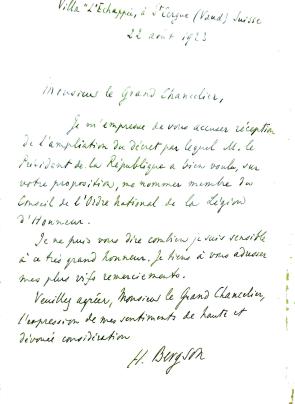 Villa "L'Echappée, à St Cergue (Vaud) Suisse
22 août 1923
Monsieur le Grand Chancelier,
Je m'empresse de vous accuser réception
de l'ampliation du décret par lequel M. le
Président de la République a bien voulu, sur
votre proposition, me nommer membre du
Conseil de l'Ordre National de la Légion
d'Honneur.
Je ne puis vous dire combien je suis sensible
à ce très grand honneur. Je tiens à vous adresser
mes plus vifs remerciements.
Veuillez agréer, Monsieur le Grand Chancelier,
l'expression de mes sentiments de haute et
dévouée considération
H. Bergson